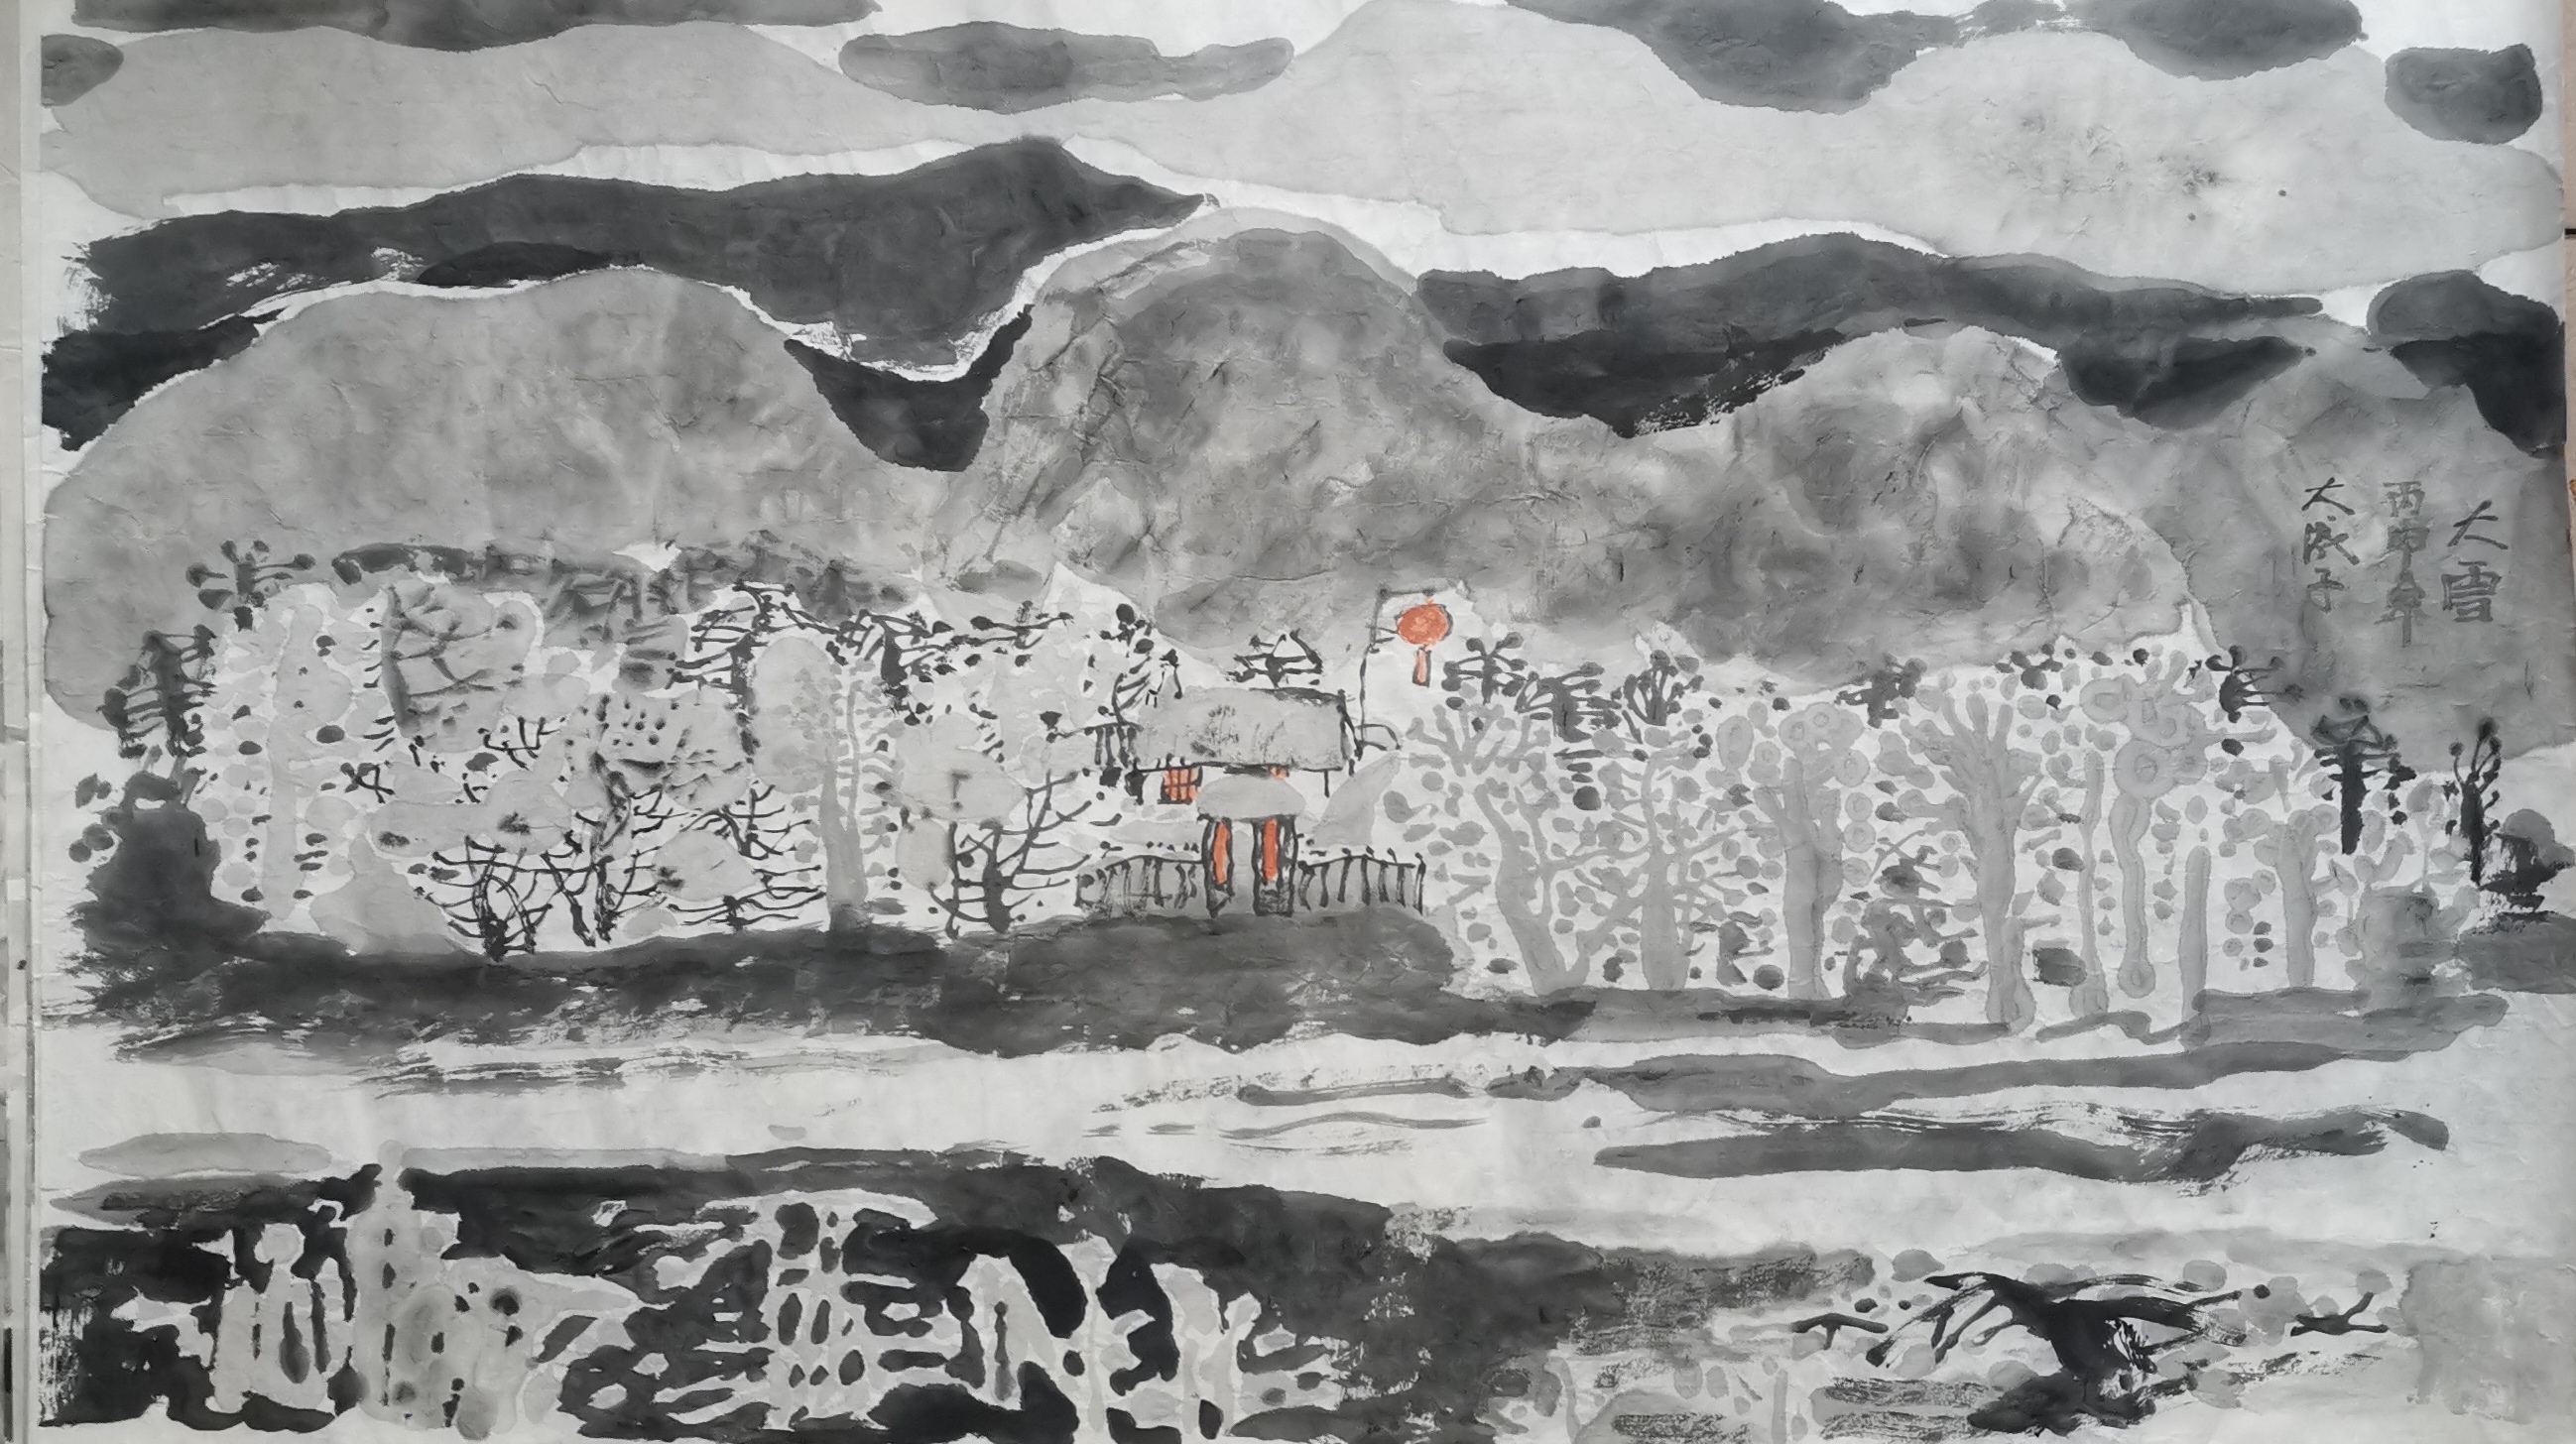 大雪
丙申年
大成子